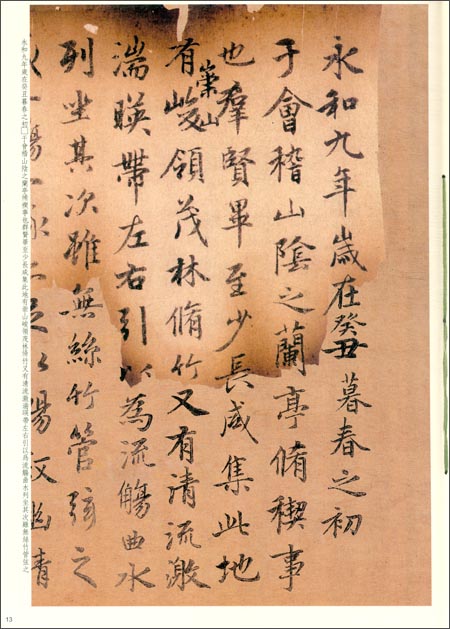 永和九年歲在癸丑暮春之初
于會稽山陰之蘭亭脩稧事
也羣賢畢至少長咸集此地
有崇山峻領茂林脩竹又有清流激
湍暎帶左右引以為流觴曲水
列坐其次雖無絲竹管弦之
一觴一詠亦足以暢敘幽情
永和九年歲在癸丑暮春之初□于會稽山陰之蘭亭脩禊事也群賢畢至少長咸集此地有崇山峻領茂林脩竹又有清流激湍暎帶左右引以爲流觴曲水列坐其次雖無絲竹管弦之
13